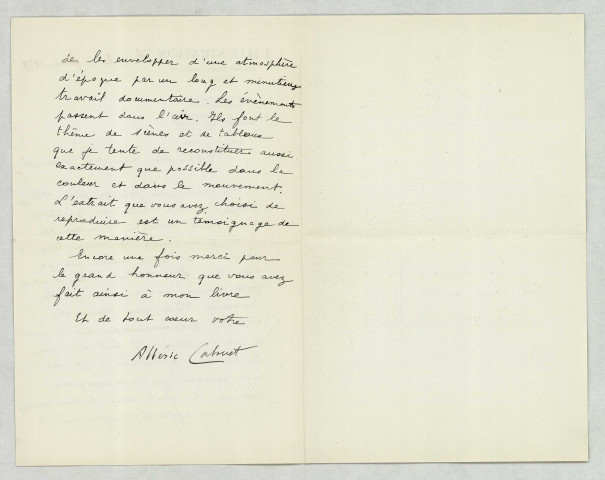 de les envelopper d'une atmosphère
d'époque par un long et minutieux
travail documentaire. Les évènements
passent dans l'air. Ils font le
thème de scènes et de tableaux
que je tente de reconstituer aussi
exactement que possible dans la
couleur et dans le mouvement.
L'extrait que vous avez choisi de
reproduire est un témoignage de
cette manière.
Encore une fois merci pour
le grand honneur que vous avez
fait ainsi à mon livre
Et de tout coeur votre
Albéric Cahuet